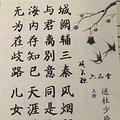 送杜少府
城阙辅三秦风烟
与君离别意同是
海内存知己天涯
无为在歧路儿女